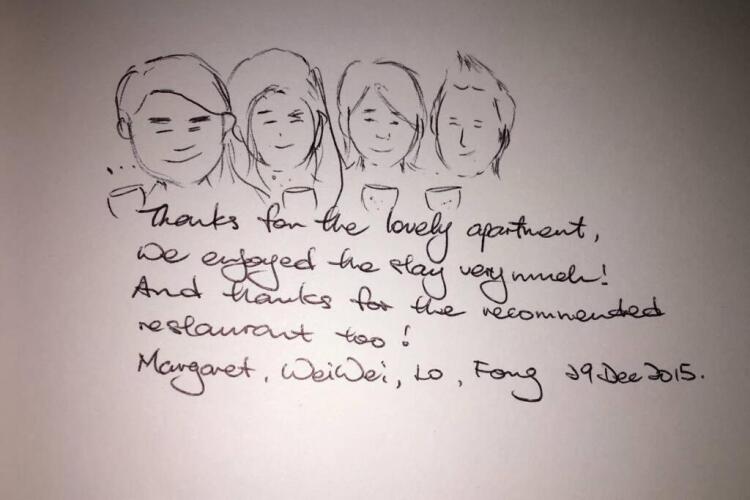 Thanks for the lovely apartment,
We enjoyed the stay very much!
And thanks for the recommended
restaurant too!
Margaret, WeiWei, Lo, Fong 29 Dec 2015.